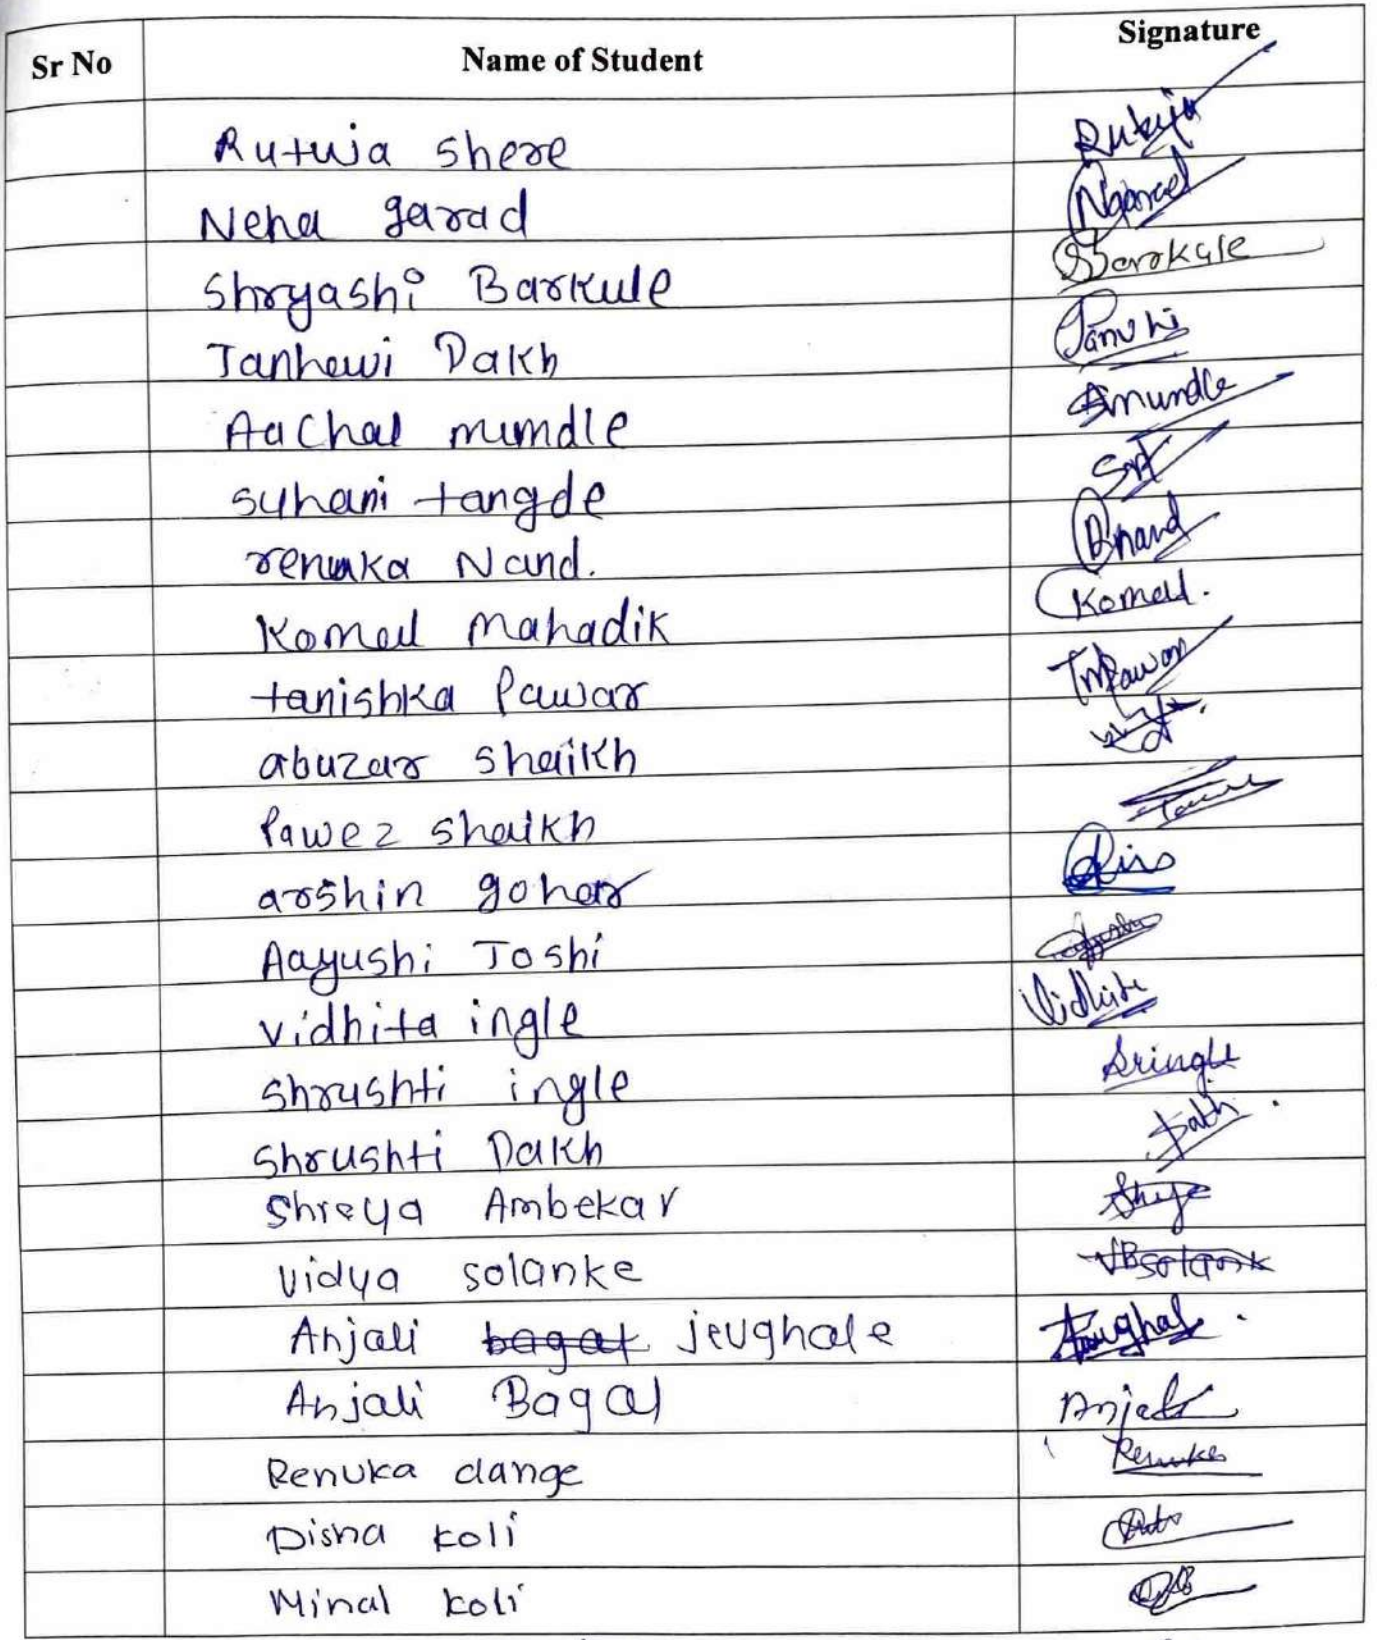 Sr No Name of Student Signature
Rutuja shere Rutuja
Neha garad Ngarad
Shryashi Barkule SBarkule
Tanhewi Dakh Tanvhi
Aachal mundle Amundle
suhani tangde
renuka Nand. Rnand
Komal Mahadik Komal.
tanishka Pawar TMPawar
abuzar shaikh
Pawez shaikh
arshin gohar
Aayushi Joshi
vidhita ingle Vidhita
shrushti ingle Sringle
Shrushti Dakh
Shreya Ambekar Shreya
vidya solanke VBSolank
Anjali jeughale
Anjali Bagal Anjali
Renuka dange Renuka
Disha koli
Minal koli